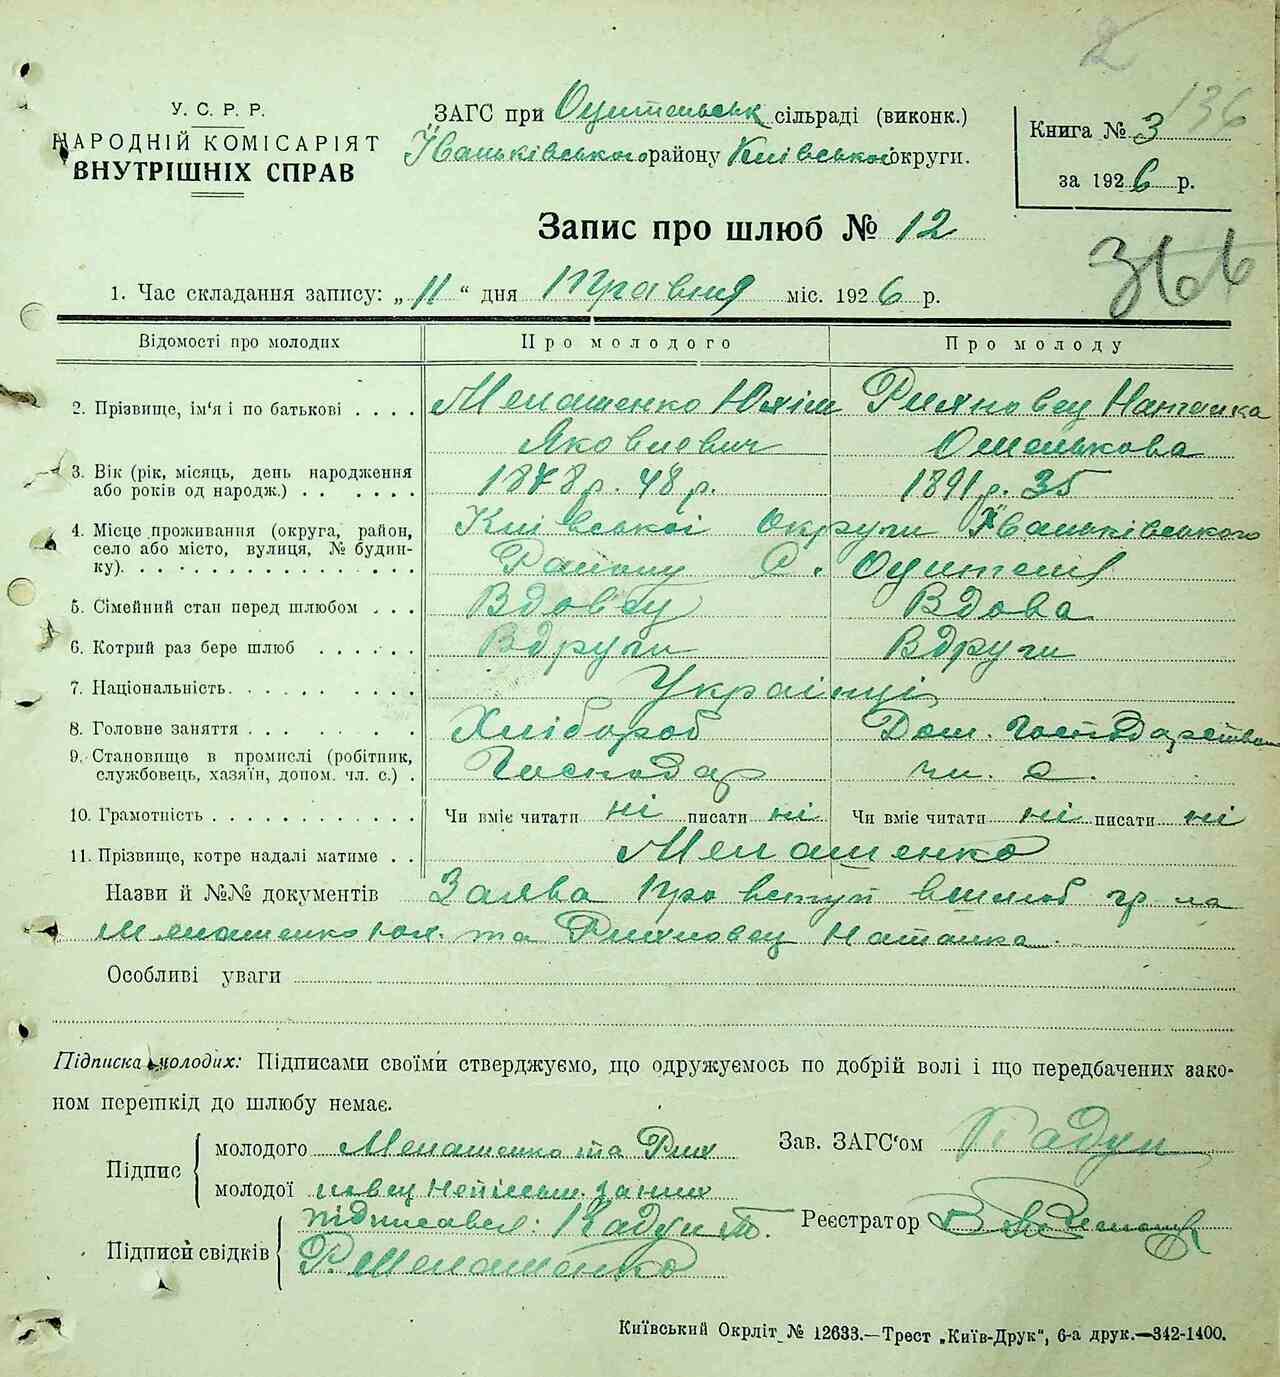 2
136
У. С. Р. Р.
НАРОДНІЙ КОМІСАРІЯТ
ВНУТРІШНІХ СПРАВ
ЗАГС при Оцительськ сільраді (виконк.)
Їваньківського району Київської округи.
Книга № 3
за 1926 р.
Запис про шлюб № 12
366
1. Час складання запису: „11“ дня Травня міс. 1926 р.
Відомості про молодих Про молодого Про молоду
2. Прізвище, ім'я і по батькові . . . . Менашенко Юхім Рихновец Наталка
Яковлевич Омелькова
3. Вік (рік, місяць, день народження
або років од народж.) . . . . . . 1878 р. 48 р. 1891 р. 35
4. Місце проживання (округа, район,
село або місто, вулиця, № будин-
ку). Київської Округи Їваньківського
Району С. Оцителі
5. Сімейний стан перед шлюбом . . . Вдовец Вдова
6. Котрий раз бере шлюб . . . . . . Вдруги Вдруги
7. Національність. Українці
8. Головне заняття Хлібороб Дом. Господарство
9. Становище в промислі (робітник,
службовець, хазяїн, допом. чл. с.) . Господар чл. с.
10. Грамотність Чи вміє читати ні писати ні Чи вміє читати ні писати ні
11. Прізвище, котре надалі матиме . . Менашенко
Назви й №№ документів Заява про вступ вшлюб гр-на
Менашенко Юх. та Рихновец Наталка.
Особливі уваги
Підписка молодих: Підписами своїми стверджуємо, що одружуємось по добрій волі і що передбачених зако-
ном перешкід до шлюбу немає.
Підпис молодого Менашенко та Рих
молодої новец Непісьм. за них
Зав. ЗАГС'ом Кадун
підписавсь: Кадун Т.
Реєстратор
Підписи свідків Р. Менашенко
Київський Окрліт № 12633.—Трест „Київ-Друк“, 6-а друк.—342-1400.